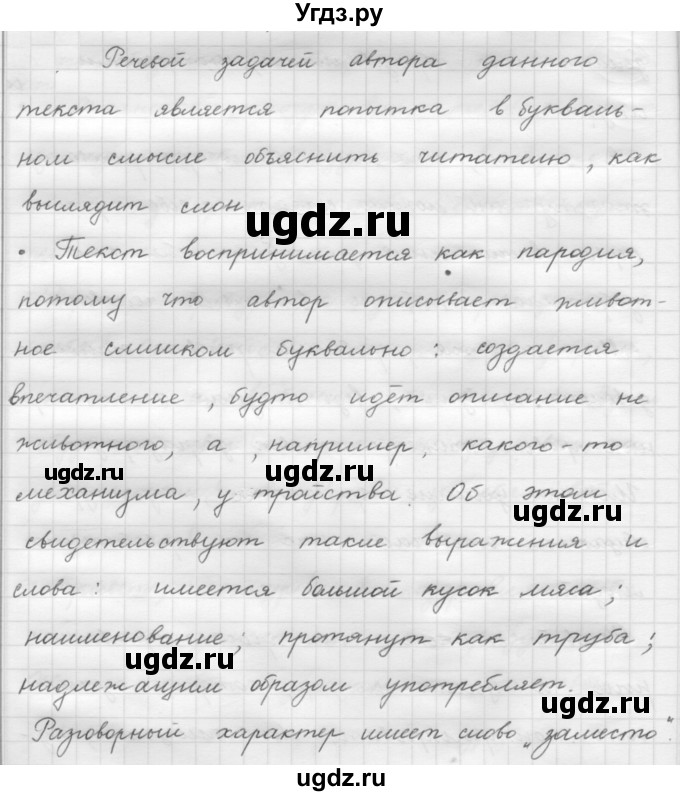 Угдз.ру
Речевой задачей автора данного
текста является попытка в букваль-
ном смысле объяснить читателю, как
выглядит слон
ugdz.ru
• Текст воспринимается как пародия,
потому что автор описывает живот-
ное слишком буквально: создается
впечатление, будто идёт описание не
животного, а, например, какого-то
ugdz.ru ugdz.ru
механизма, у тройства. Об этом
ugdz.ru
свидетельствуют такие выражения и
слова: имеется большой кусок мяса;
наименование; протянут как труба;
ugdz.ru
надлежащим образом употребляет.
ugdz.ru
Разговорный характер имеет слово „заместо".
ugdz.ru